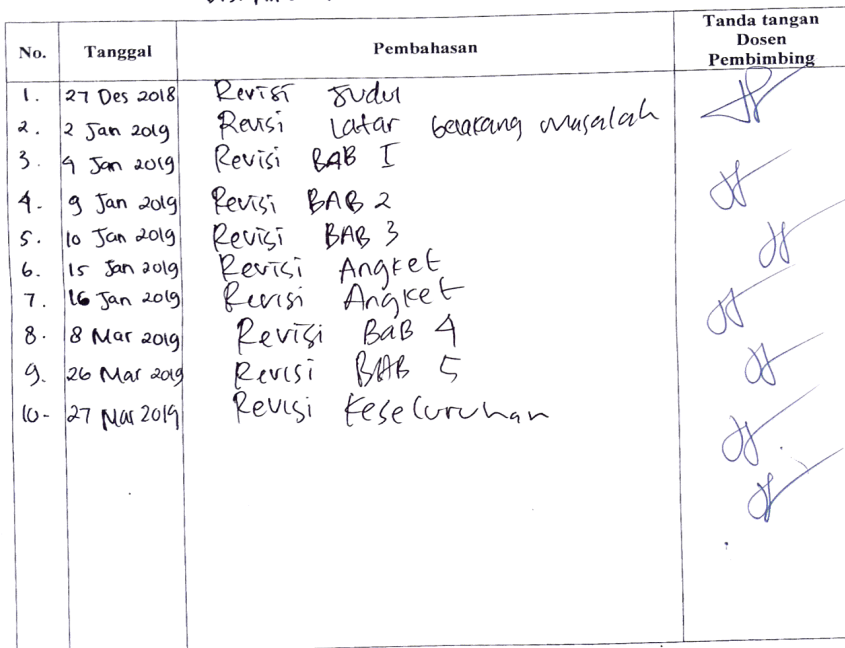 No. Tanggal Pembahasan Tanda tangan Dosen Pembimbing
1. 27 Des 2018 Revisi Judul
2. 2 Jan 2019 Revisi Latar belakang masalah
3. 4 Jan 2019 Revisi BAB I
4. 9 Jan 2019 Revisi BAB 2
5. 10 Jan 2019 Revisi BAB 3
6. 15 Jan 2019 Revisi Angket
7. 16 Jan 2019 Revisi Angket
8. 8 Mar 2019 Revisi BaB 4
9. 26 Mar 2019 Revisi BAB 5
10. 27 Mar 2019 Revisi Keseluruhan